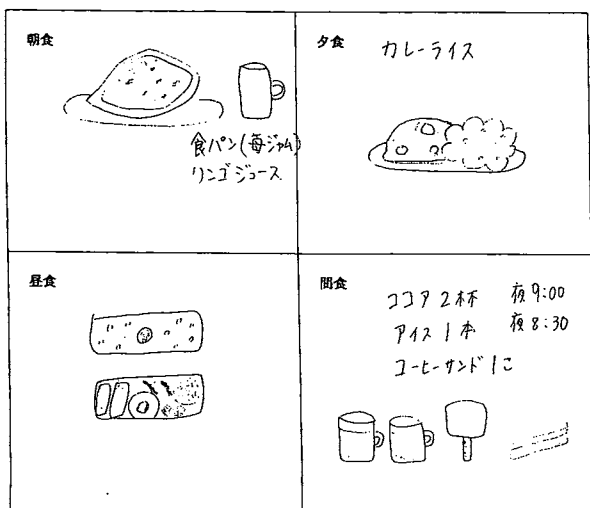 朝食
食パン(苺ジャム)
リンゴジュース
夕食
カレーライス
昼食
間食
ココア 2杯 夜9:00
アイス 1本 夜8:30
コーヒーサンド 1こ